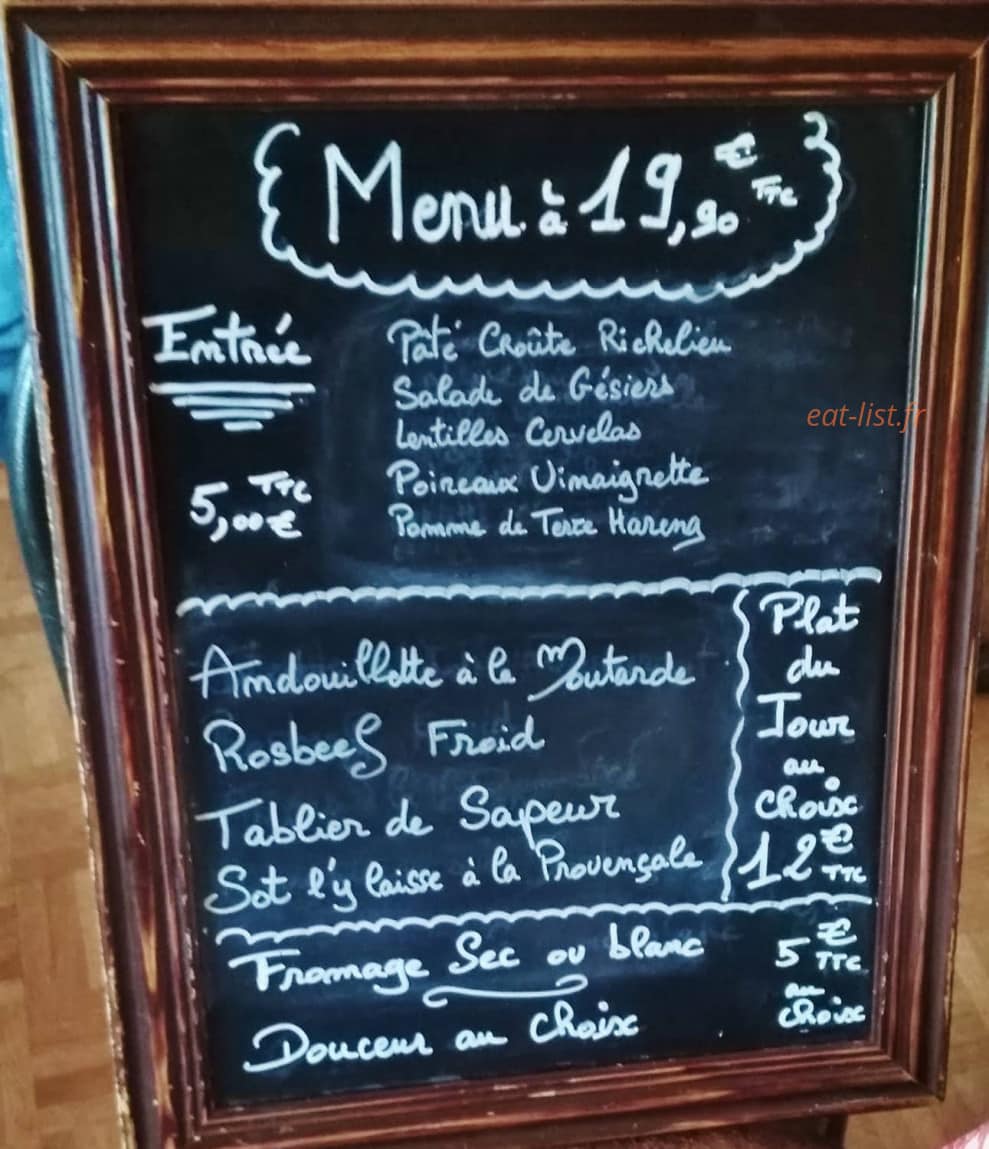 Menu à 19,90 € TTC
Entrée
5,00 € TTC
Pâté Croûte Richelieu
Salade de Gésiers
Lentilles Cervelas
Poireaux Vinaigrette
Pomme de Terre Hareng
eat-list.fr
Andouillette à la Moutarde
Rosbeef Froid
Tablier de Sapeur
Sot l'y laisse à la Provençale
Plat
du
Jour
au
choix
12 € TTC
Fromage Sec ou blanc
Douceur au choix
5 € TTC
au
choix